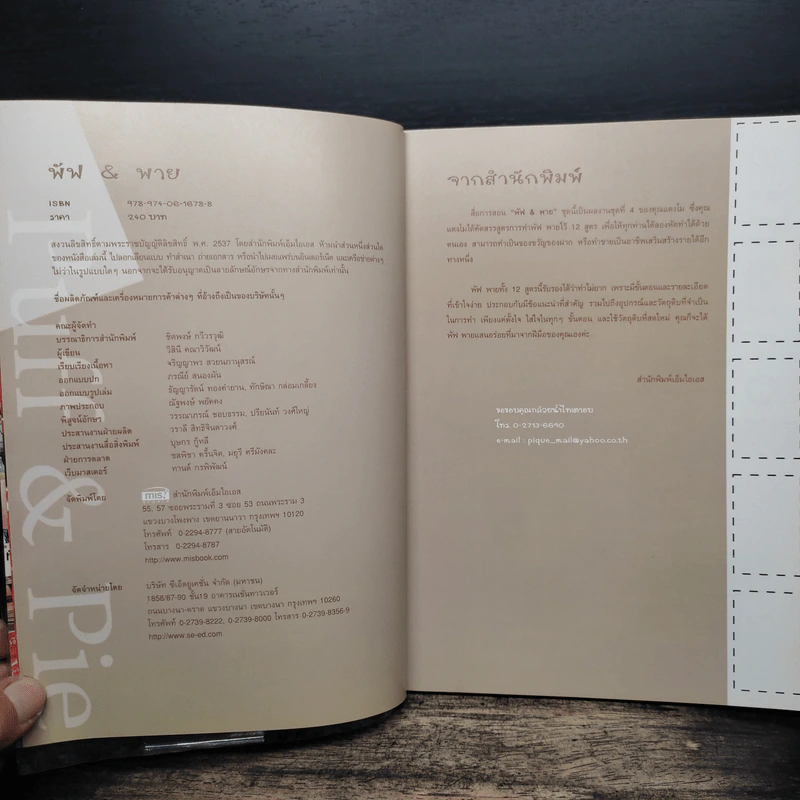 พัฟ & พาย
ISBN 978-974-06-1678-8
ราคา 240 บาท
สงวนลิขสิทธิ์ตามพระราชบัญญัติลิขสิทธิ์ พ.ศ. 2537 โดยสำนักพิมพ์เอ็มไอเอส ห้ามนำส่วนหนึ่งส่วนใด
ของหนังสือเล่มนี้ ไปลอกเลียนแบบ ทำสำเนา ถ่ายเอกสาร หรือนำไปเผยแพร่บนอินเตอร์เน็ต และเครือข่ายต่างๆ
ไม่ว่าในรูปแบบใดๆ นอกจากจะได้รับอนุญาตเป็นลายลักษณ์อักษรจากทางสำนักพิมพ์เท่านั้น
ชื่อผลิตภัณฑ์และเครื่องหมายการค้าต่างๆ ที่อ้างถึงเป็นของบริษัทนั้นๆ
คณะผู้จัดทำ
บรรณาธิการสำนักพิมพ์ ชิตพงษ์ กวีวรวุฒิ
ผู้เขียน วิสินี คณาวิวัฒน์
เรียบเรียงเนื้อหา จริญญาพร สวยนภานุสรณ์
ออกแบบปก ภรณีย์ สนองผัน
ออกแบบรูปเล่ม ธัญญารัตน์ ทองคำยาน, ทักษิณา กล่อมเกลี้ยง
ภาพประกอบ ณัฐพงษ์ พยัคคง
พิสูจน์อักษร วรรณาภรณ์ ชอบธรรม, ปรียนันท์ วงศ์ใหญ่
ประสานงานฝ่ายผลิต วราลี สิทธิจินดาวงศ์
ประสานงานสื่อสิ่งพิมพ์ บุษกร กู้หลี
ฝ่ายการตลาด ชลพิชา ครื้นจิต, มยุรี ศรีมังคละ
เว็บมาสเตอร์ ทานต์ กรพิพัฒน์
จัดพิมพ์โดย mis! สำนักพิมพ์เอ็มไอเอส
55, 57 ซอยพระรามที่ 3 ซอย 53 ถนนพระราม 3
แขวงบางโพงพาง เขตยานนาวา กรุงเทพฯ 10120
โทรศัพท์ 0-2294-8777 (สายอัตโนมัติ)
โทรสาร 0-2294-8787
http://www.misbook.com
จัดจำหน่ายโดย บริษัท ซีเอ็ดยูเคชั่น จำกัด (มหาชน)
1858/87-90 ชั้น19 อาคารเนชั่นทาวเวอร์
ถนนบางนา-ตราด แขวงบางนา เขตบางนา กรุงเทพฯ 10260
โทรศัพท์ 0-2739-8222, 0-2739-8000 โทรสาร 0-2739-8356-9
http://www.se-ed.com
Puff & Pie
จากสำนักพิมพ์
สื่อการสอน "พัฟ & พาย" ชุดนี้เป็นผลงานชุดที่ 4 ของคุณแตงโม ซึ่งคุณ
แตงโมได้คัดสรรสูตรการทำพัฟ พายไว้ 12 สูตร เพื่อให้ทุกท่านได้ลองหัดทำได้ด้วย
ตนเอง สามารถทำเป็นของขวัญของฝาก หรือทำขายเป็นอาชีพเสริมสร้างรายได้อีก
ทางหนึ่ง
พัฟ พายทั้ง 12 สูตรนี้รับรองได้ว่าทำไม่ยาก เพราะมีขั้นตอนและรายละเอียด
ที่เข้าใจง่าย ประกอบกับมีข้อแนะนำที่สำคัญ รวมไปถึงอุปกรณ์และวัตถุดิบที่จำเป็น
ในการทำ เพียงแค่ตั้งใจ ใส่ใจในทุกๆ ขั้นตอน และใช้วัตถุดิบที่สดใหม่ คุณก็จะได้
พัฟ พายแสนอร่อยที่มาจากฝีมือของคุณเองค่ะ
สำนักพิมพ์เอ็มไอเอส
ขอขอบคุณกล้วยน้ำไทเตาอบ
โทร 0-2713-6690
e-mail : pique_mail@yahoo.co.th